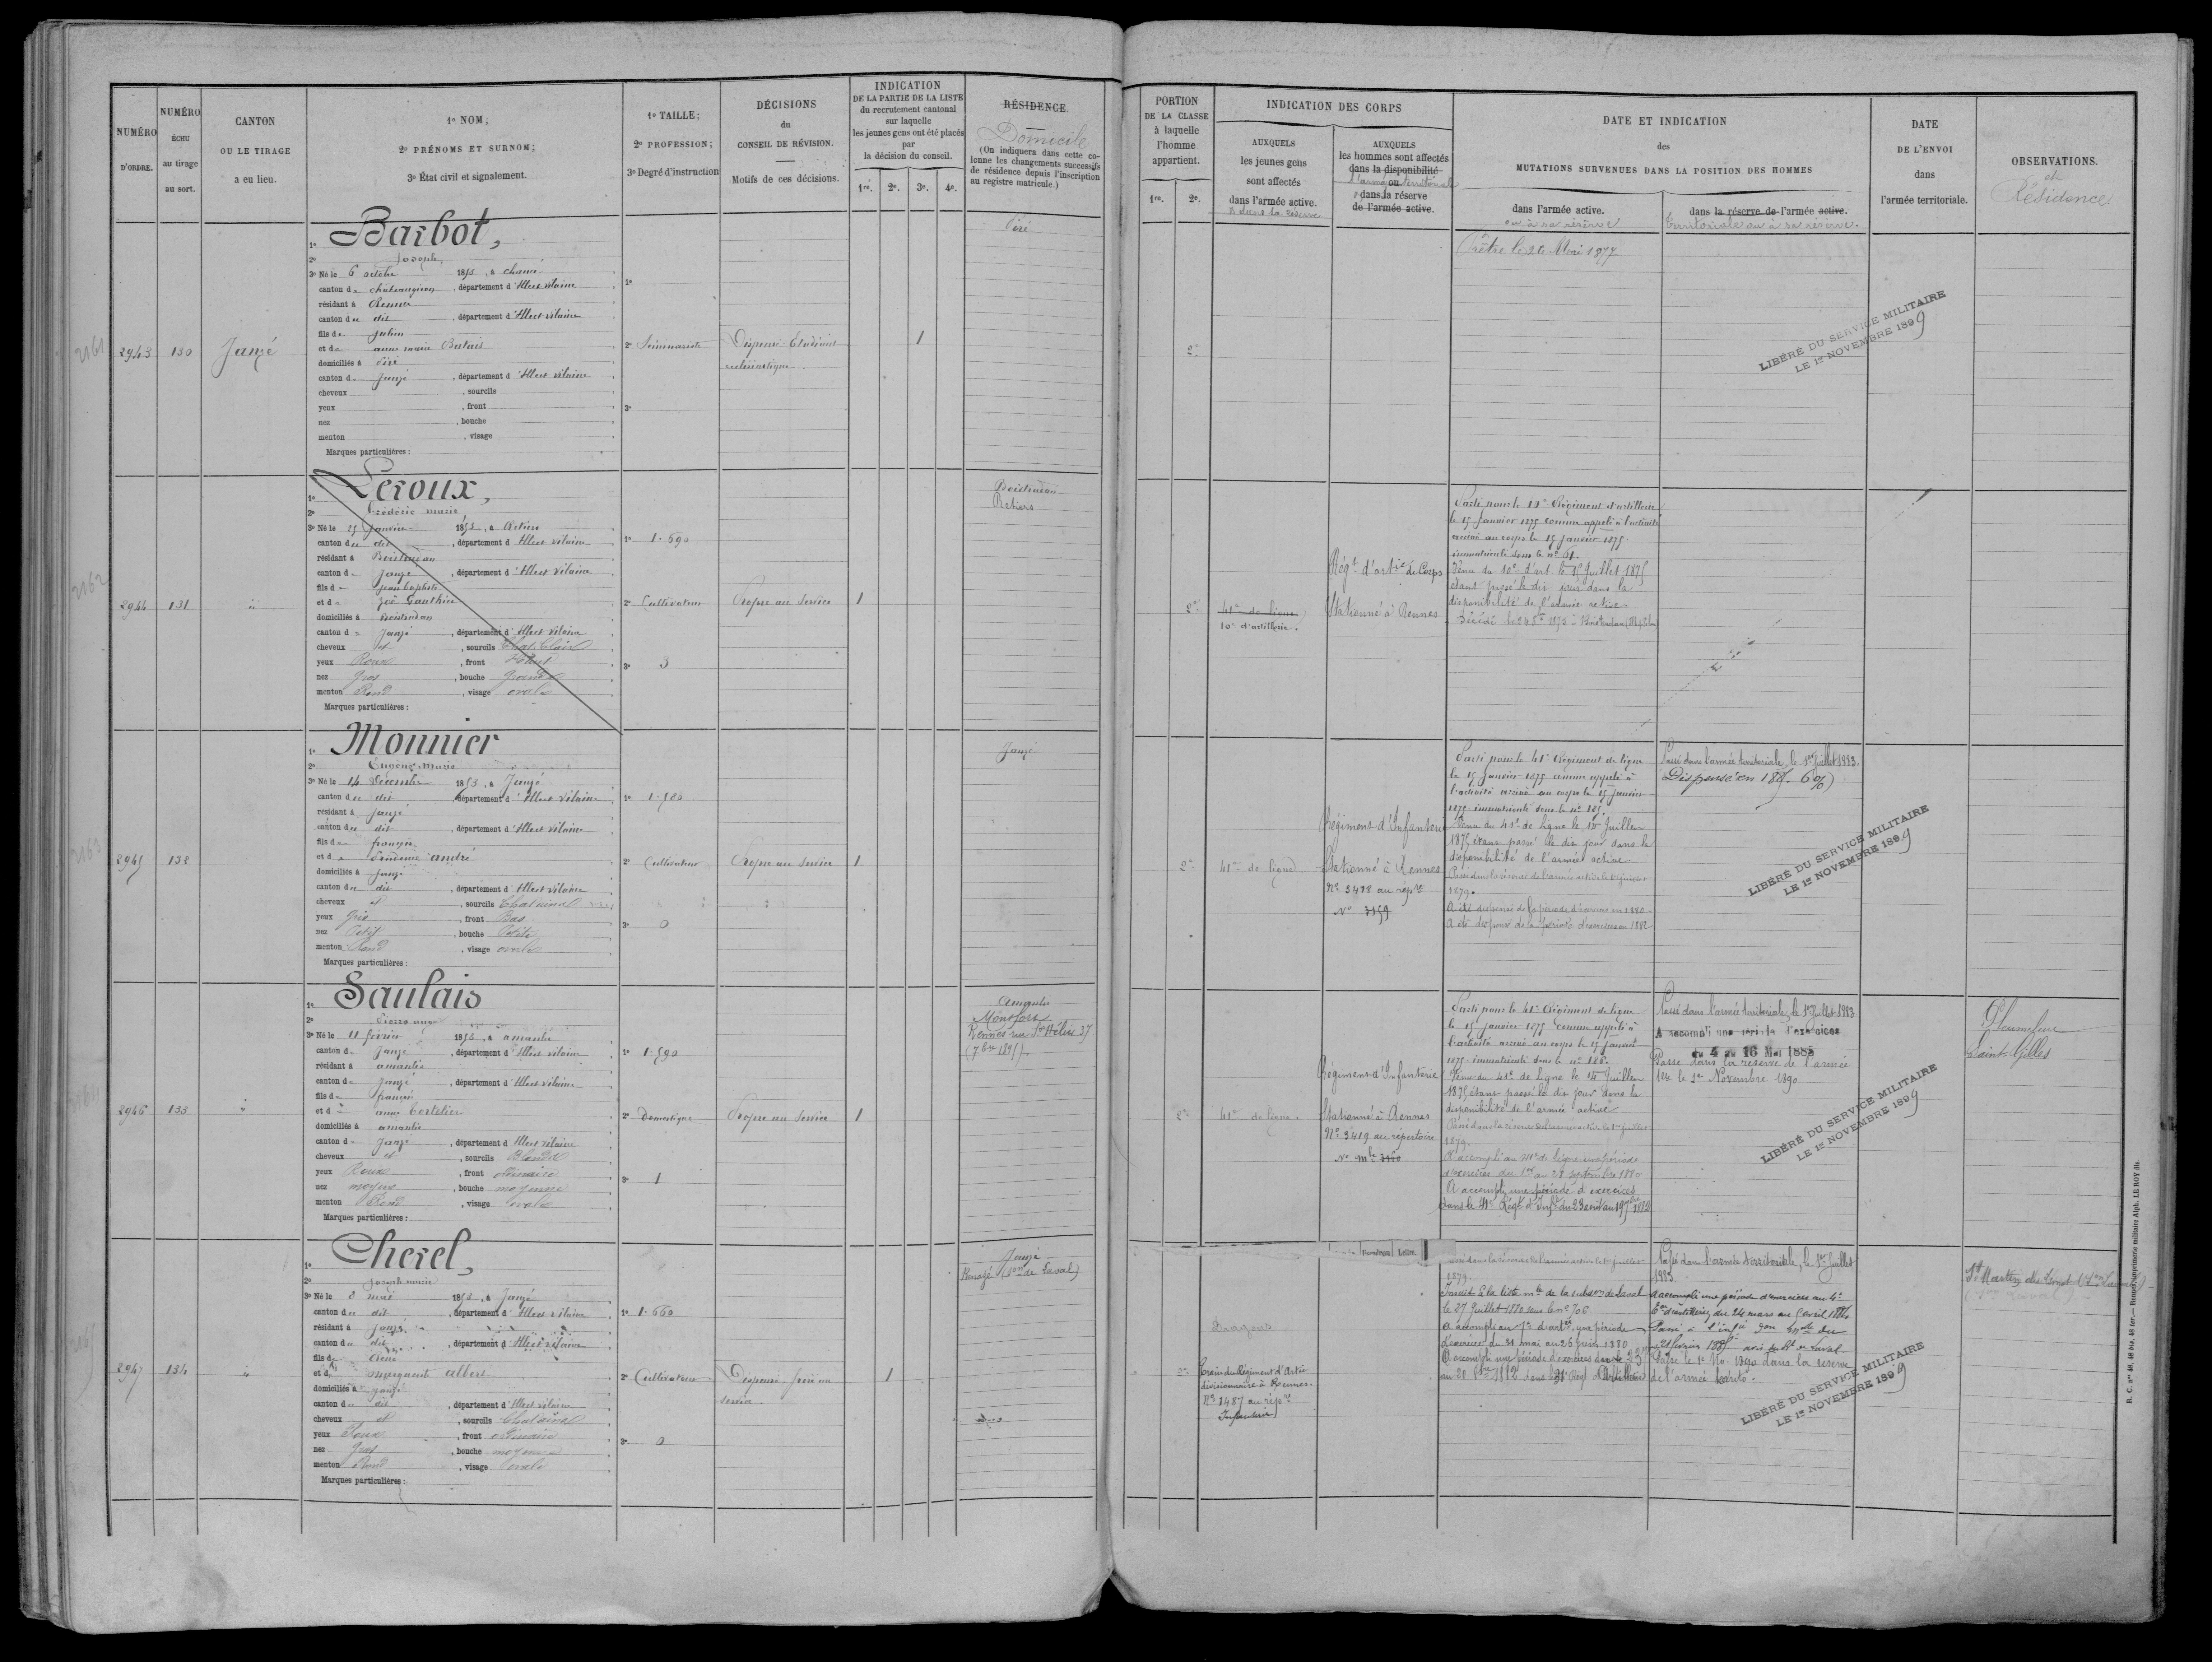 NUMÉRO D'ORDRE.
NUMÉRO ÉCHU au tirage au sort.
CANTON OU LE TIRAGE a eu lieu.
1º NOM;
2º PRÉNOMS ET SURNOM;
3º État civil et signalement.
1º TAILLE;
2º PROFESSION;
3º Degré d'instruction
DÉCISIONS du CONSEIL DE RÉVISION.
Motifs de ces décisions.
INDICATION
DE LA PARTIE DE LA LISTE
du recrutement cantonal
sur laquelle
les jeunes gens ont été placés
par
la décision du conseil.
1re. 2e. 3e. 4e.
RÉSIDENCE.
Domicile
(On indiquera dans cette co-
lonne les changements successifs
de résidence depuis l'inscription
au registre matricule.)
2161
2943
130
Janzé
1º Barbot,
2º Joseph,
3º Né le 6 octobre 1853, à Chancé
canton de Châteaugiron, département d'Ille et Vilaine
résidant à Rennes
canton du dit, département d'Ille et Vilaine
fils de Julien
et de anne marie Batais
domiciliés à Piré
canton de Janzé, département d'Ille et Vilaine
cheveux , sourcils
yeux , front
nez , bouche
menton , visage
Marques particulières :
1º
2º Séminariste
3º
Dispensé Etudiant
ecclésiastique.
1
Piré
2162
2944
131
"
1º Leroux,
2º Frédéric marie
3º Né le 25 Janvier 1853, à Retiers
canton du dit, département d'Ille et Vilaine
résidant à Boistrudan
canton de Janzé, département d'Ille et Vilaine
fils de Jean baptiste
et de Zoé Gauthier
domiciliés à Boistrudan
canton de Janzé, département d'Ille et Vilaine
cheveux et , sourcils Chat. Clair
yeux Roux , front Haut
nez Gros , bouche Grande
menton Rond , visage ovale
Marques particulières :
1º 1.690
2º Cultivateur
3º 3
Propre au Service
1
Boistrudan
Retiers
2163
2945
132
1º Monnier
2º Eugène Marie
3º Né le 14 Décembre 1853, à Janzé
canton du dit, département d'Ille et Vilaine
résidant à Janzé
canton du dit, département d'Ille et Vilaine
fils de françois
et de Prudence andré
domiciliés à Janzé
canton du dit, département d'Ille et Vilaine
cheveux et , sourcils Chatains
yeux Gris , front Bas
nez Petit , bouche Petite
menton Rond , visage ovale
Marques particulières :
1º 1.580
2º Cultivateur
3º 0
Propre au Service
1
Janzé
2946
133
"
1º Saulais
2º Pierre ange
3º Né le 11 février 1853, à amanlis
canton de Janzé, département d'Ille et Vilaine
résidant à amanlis
canton de Janzé, département d'Ille et Vilaine
fils de françois
et de anne Cortelier
domiciliés à amanlis
canton de Janzé, département d'Ille et Vilaine
cheveux et , sourcils Blonds
yeux Roux , front ordinaire
nez moyen , bouche moyenne
menton Rond , visage ovale
Marques particulières :
1º 1.590
2º Domestique
3º 1
Propre au Service
1
Amanlis
Montfort
Rennes rue St Hélier 37
(7bre 1895).
2947
134
"
1º Cherel,
2º Joseph marie
3º Né le 8 mai 1853, à Janzé
canton du dit, département d'Ille et Vilaine
résidant à Janzé
canton du dit, département d'Ille et Vilaine
fils de René
et de marguerite albert
domiciliés à Janzé
canton du dit, département d'Ille et Vilaine
cheveux et , sourcils Chatains
yeux Roux , front ordinaire
nez Gros , bouche moyenne
menton Rond , visage ovale
Marques particulières :
1º 1.660
2º Cultivateur
3º 0
Dispensé frère au
service.
1
Janzé
Renazé (Son de Laval)
PORTION
DE LA CLASSE
à laquelle
l'homme
appartient.
1re. 2e.
INDICATION DES CORPS
AUXQUELS
les jeunes gens
sont affectés
dans l'armée active.
et dans la réserve
AUXQUELS
les hommes sont affectés
dans la disponibilité
ou
l'armée territoriale
dans la réserve
de l'armée active.
DATE ET INDICATION
des
MUTATIONS SURVENUES DANS LA POSITION DES HOMMES
dans l'armée active.
ou à sa réserve
dans la réserve de l'armée active.
territoriale ou à sa réserve.
DATE
DE L'ENVOI
dans
l'armée territoriale.
OBSERVATIONS.
et
Résidence
2e
Prêtre le 26 Mai 1877
LIBÉRÉ DU SERVICE MILITAIRE
LE 1er NOVEMBRE 1899
2e
41e de ligne
10e d'artillerie.
Régt d'artie de Corps
Stationné à Rennes
Parti pour le 10e Régiment d'artillerie
le 15 Janvier 1875 comme appelé à l'activité
arrivé au corps le 15 janvier 1875.
immatriculé sous le nº 61.
Venu du 10e d'art. le 15 Juillet 1875
étant passé le dit jour dans la
disponibilité de l'armée active.
2e
41e de ligne
Régiment d'Infanterie
Stationné à Rennes
Nº 3418 au répre
Nº 3159
Parti pour le 41e Régiment de ligne
le 15 Janvier 1875 comme appelé à
l'activité arrivé au corps le 15 janvier
1875. immatriculé sous le nº 185.
Venu du 41e de Ligne le 15 Juillet
1875 étant passé le dit jour dans la
disponibilité de l'armée active.
Passé dans la réserve de l'armée active le 1er juillet
1879.
A été dispensé de la période d'exercices en 1880.
A été dispensé de la période d'exercices en 1882
Passé dans l'armée territoriale, le 1er Juillet 1883.
LIBÉRÉ DU SERVICE MILITAIRE
LE 1er NOVEMBRE 1899
2e
41e de ligne.
Régiment d'Infanterie
Stationné à Rennes
Nº 3419 au répertoire
Nº mle 3160
Parti pour le 41e Régiment de ligne
le 15 janvier 1875 comme appelé à
l'activité arrivé au corps le 15 janvier
1875. immatriculé sous le nº 186.
Venu du 41e de Ligne le 15 Juillet
1875 étant passé le dit jour dans la
disponibilité de l'armée active
Passé dans la réserve de l'armée active le 1er juillet
1879.
A accompli au 41e de ligne une période
d'exercices du 1er au 28 septembre 1880
A accompli une période d'exercices
dans le 41e Régt d'Infie du 23 août au 19 7bre 1882
Passé dans l'armée territoriale, le 1er Juillet 1883
A accompli une période d'exercices
du 4 au 16 Mai 1885
Passé dans la réserve de l'armée
terr. le 1er Novembre 1890
Pleumeleuc
Saint-Gilles
LIBÉRÉ DU SERVICE MILITAIRE
LE 1er NOVEMBRE 1899
Numéros Lettre.
Dragons
Train du Régiment d'Artie
divisionnaire à Rennes.
Nº 1487 au répre
Infanterie
Passé dans la réserve de l'armée active le 1er juillet
1879.
Inscrit à la liste mle de la subdon de Laval
le 27 Juillet 1880 sous le nº 706
période
d'exercices du 31 mai au 26 juin 1880
A accompli une période d'exercices
Passé dans l'armée territoriale, le 1er Juillet
1883.
A accompli une période d'exercices au 4e
du 24 mars au 5 avril 1884.
Passé le 1er No. 1890 dans la réserve
de l'armée territle.
LIBÉRÉ DU SERVICE MILITAIRE
LE 1er NOVEMBRE 1899
R. C. nos 40, 48 bis, 48 ter. — Rennes, imprimerie militaire Alph. LE ROY fils.